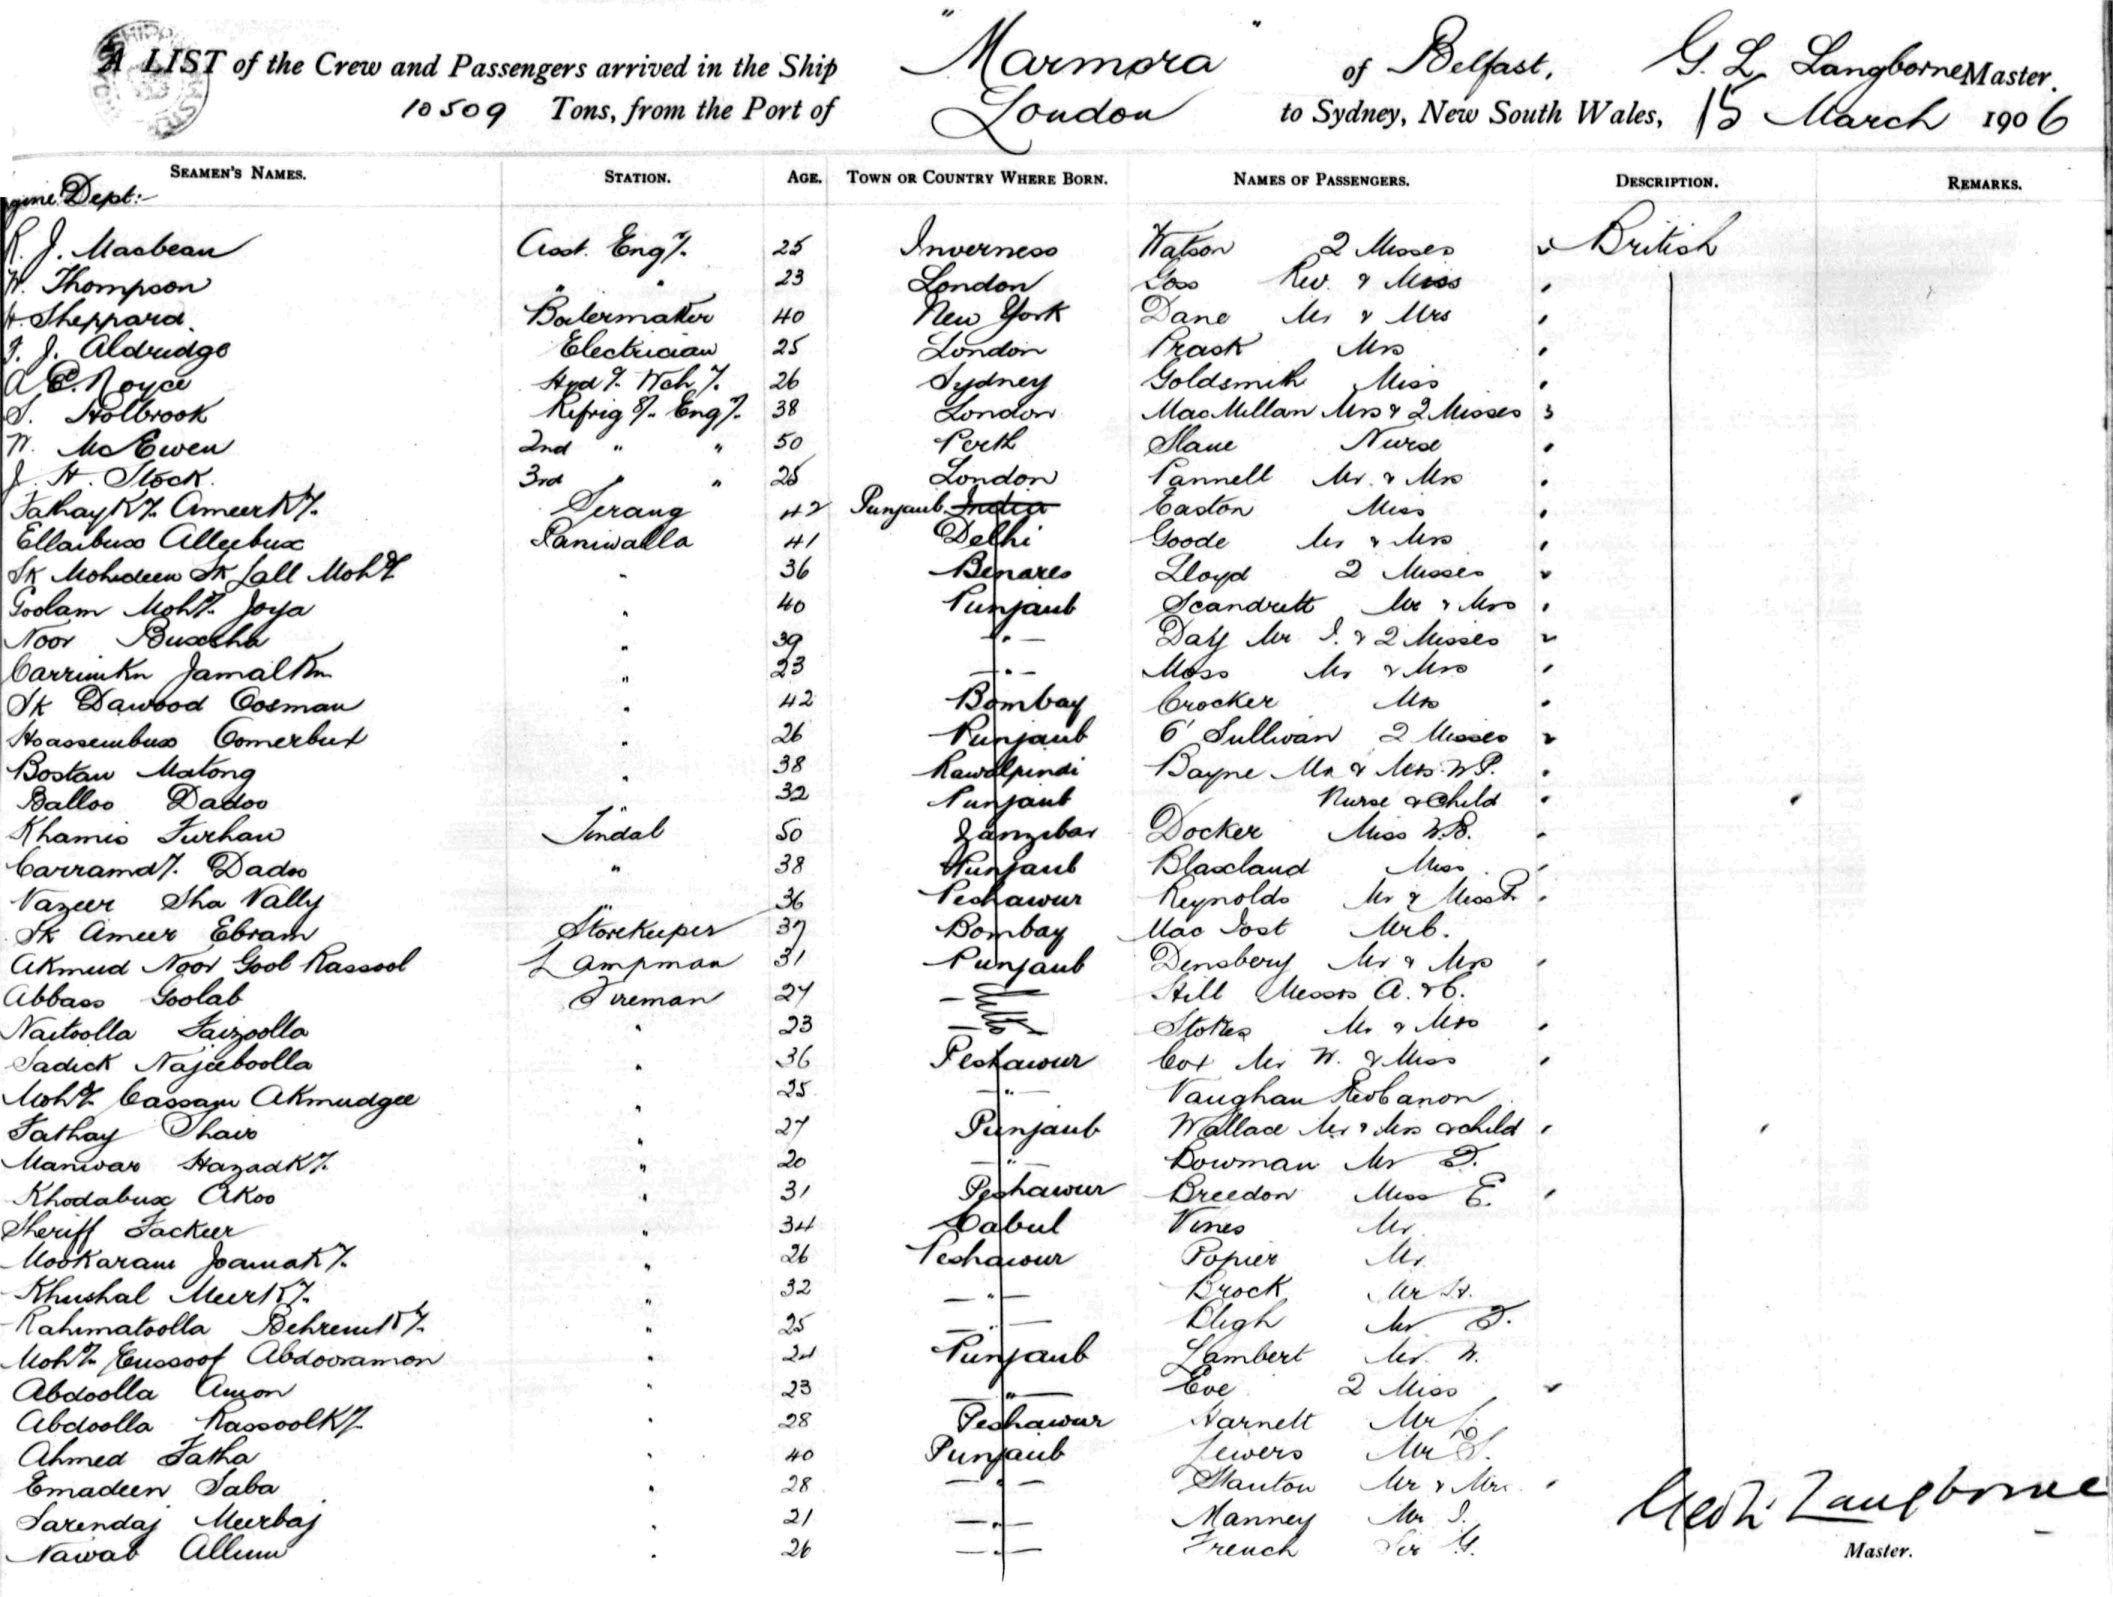 A LIST of the Crew and Passengers arrived in the Ship "Marmora" of Belfast, G. L. Langborne Master.
10509 Tons, from the Port of London to Sydney, New South Wales, 15 March 1906
SEAMEN'S NAMES. STATION. AGE. TOWN OR COUNTRY WHERE BORN. NAMES OF PASSENGERS. DESCRIPTION. REMARKS.
Dept:
R. J. Macbean Asst. Engr. 25 Inverness Watson 2 Misses British
Thompson " " 23 London Goss Rev. & Miss
Sheppard Boilermaker 40 New York Dane Mr & Mrs
J. Aldridge Electrician 25 London Prask Mrs
Royce 26 Sydney Goldsmith Miss
S. Holbrook Refrigr. Engr. 38 London MacMillan Mrs & 2 Misses
W. McEwen 2nd " " 50 Perth Slane Nurse
J. H. Stock. 3rd " " 25 London Pannell Mr. & Mrs
Fathay Kn. Ameer Kn. Serang 42 Punjaub India Easton Miss
Ellaibux Alleebux Paniwalla 41 Delhi Goode Mr & Mrs
Sk Mohideen Sk Lall Mohd. " 36 Benares Lloyd 2 Misses
Goolam Mohd. Joya " 40 Punjaub Scandrett Mr & Mrs
Noor Buxsha " 39 —"— Daly Mr J. & 2 Misses
Carrimkn Jamalkn " 23 —"— Moss Mr & Mrs
Sk Dawood Oosman " 42 Bombay Crocker Mrs
Hoassembux Oomerbux " 26 Punjaub O'Sullivan 2 Misses
Bostan Matong " 38 Rawalpindi Bayne Mr & Mrs. W.P.
Balloo Dadoo " 32 Punjaub Nurse & Child
Khamis Furhan Tindal 50 Zanzibar Docker Miss W.B.
Carramd. Dadoo " 38 Punjaub Blaxland Miss
Nazeer Sha Vally " 36 Peshawur Reynolds Mr & Miss
Sk Ameer Ebram Storekeeper 37 Bombay Mac Mr C.
Akmud Noor Gool Rassool Lampman 31 Punjaub Densbery Mr & Mrs
Abbass Goolab Fireman 27 Hill Messrs A. & C.
Naitoolla Faizoolla " 23 Stokes Mr & Mrs
Sadick Najeeboolla " 36 Peshawur Cox Mr W. & Miss
Mohd. Cassam Akmudgee " 25 —"— Vaughan Rev Canon
Fathay " 27 Punjaub Wallace Mr & Mrs & child
Manwar HazadKn. " 20 —"— Bowman Mr
Khodabux Akoo " 31 Peshawur Breedon Miss E.
Sheriff Fackeer " 34 Cabul Vines Mr
Mookaram JoamaKn. " 26 Peshawur Popier Mr
Khushal MeerKn. " 32 —"— Brock Mr H.
Rahimatoolla BehremKn. " 25 —"— Bligh Mr
Mohd. Eussoof Abdooramon " 24 Punjaub Lambert Mr. W.
Abdoolla Amon " 23 —"— Eve 2 Miss
Abdoolla RassoolKn. " 28 Peshawur Harnett Mr
Ahmed Fatha " 40 Punjaub Lewers Mr S.
Emadeen Saba " 28 —"— Stanton Mr & Mrs
Sarendaj Meerbaj " 21 —"— Manney Mr J.
Nawab Allum " 26 —"— French Sir G.
Langborne
Master.